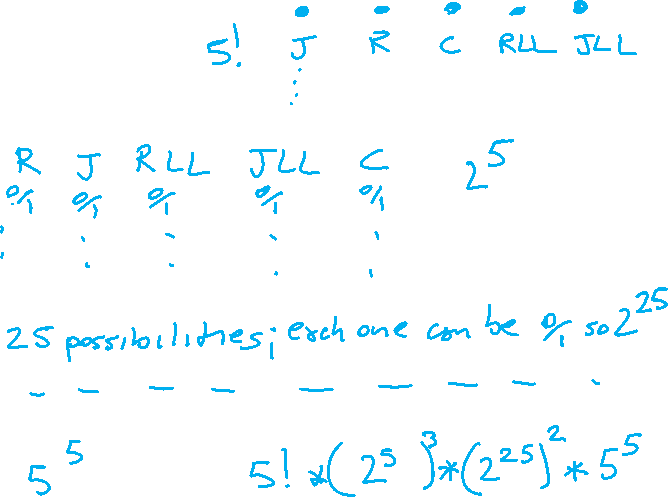 5! J R C RLL JLL
R J RLL JLL C 2^5
0/1 0/1 0/1 0/1 0/1
25 possibilities; each one can be 0/1 so 2^25
5^5 5! *(2^5)^3*(2^25)^2 * 5^5